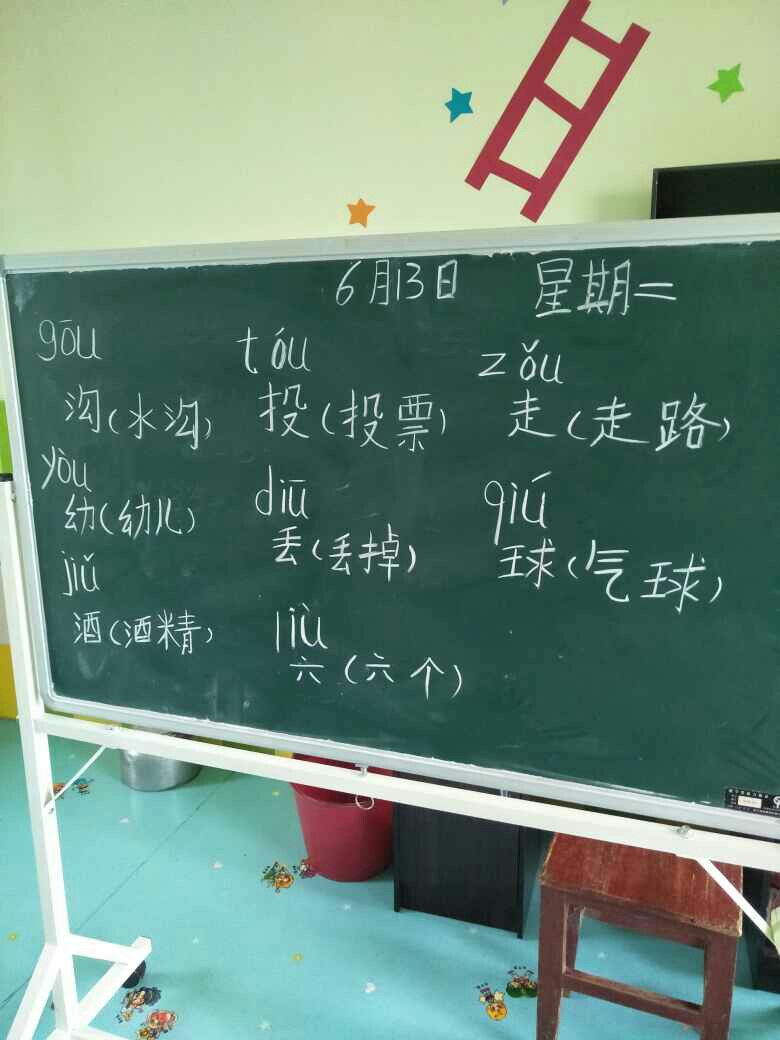 6月13日 星期二
gōu tóu zǒu
沟(水沟) 投(投票) 走(走路)
yòu diū qiú
幼(幼儿) 丢(丢掉) 球(气球)
jiǔ liù
酒(酒精) 六(六个)